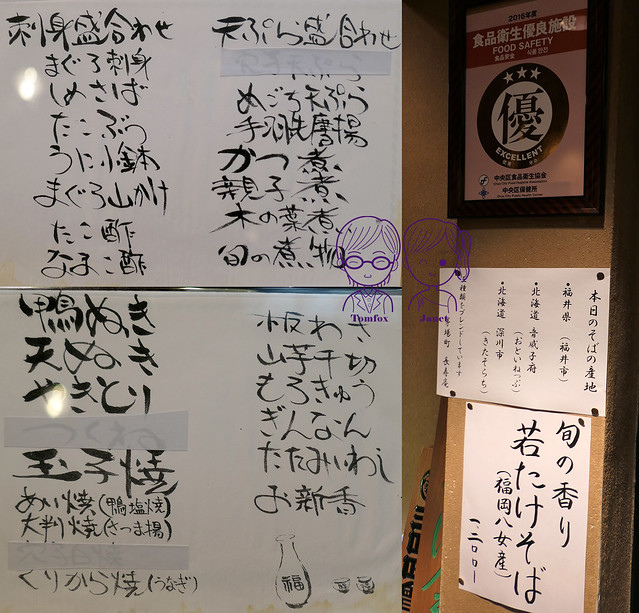 刺身盛合わせ
まぐろ刺身
しめさば
たこぶつ
うに小鉢
まぐろ山かけ
たこ酢
なまこ酢
天ぷら盛合わせ
めごち天ぷら
手羽先唐揚
かつ煮
親子煮
木の葉煮
旬の煮物
鴨ぬき
天ぬき
やきとり
玉子焼
あい焼(鴨塩焼)
大判焼(さつま揚)
くりから焼(うなぎ)
板わさ
山芋千切
もろきゅう
ぎんなん
たたみいわし
お新香
福
Tomfox
Janet
2016年度
食品衛生優良施設
FOOD SAFETY
食品安全 식품 안전
優
EXCELLENT
中央区食品衛生協会
中央区保健所
本日のそばの産地
・福井県(福井市)
・北海道 音威子府
(おといねっぷ)
・北海道 深川市
(きたそらち)
種類をブレンドしています
長寿庵
旬の香り
若たけそば
(福岡八女産)
一二〇〇-